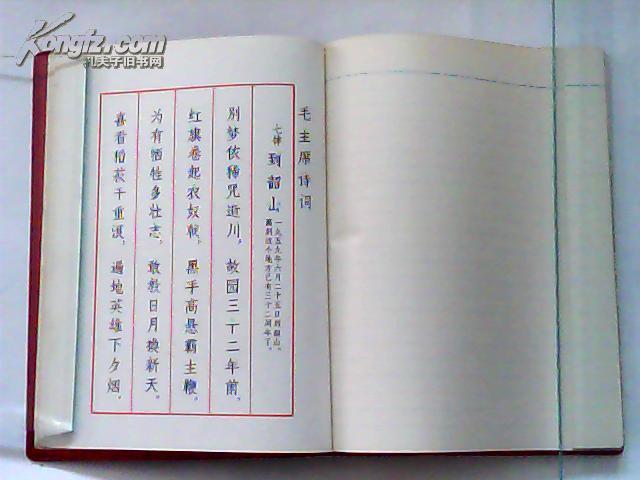 Kongfz.com
孔夫子旧书网
毛主席诗词
七律 到韶山
一九五九年六月二十五日到韶山。
离别这个地方已有三十二周年了。
别梦依稀咒逝川，故园三十二年前。
红旗卷起农奴戟，黑手高悬霸主鞭。
为有牺牲多壮志，敢教日月换新天。
喜看稻菽千重浪，遍地英雄下夕烟。